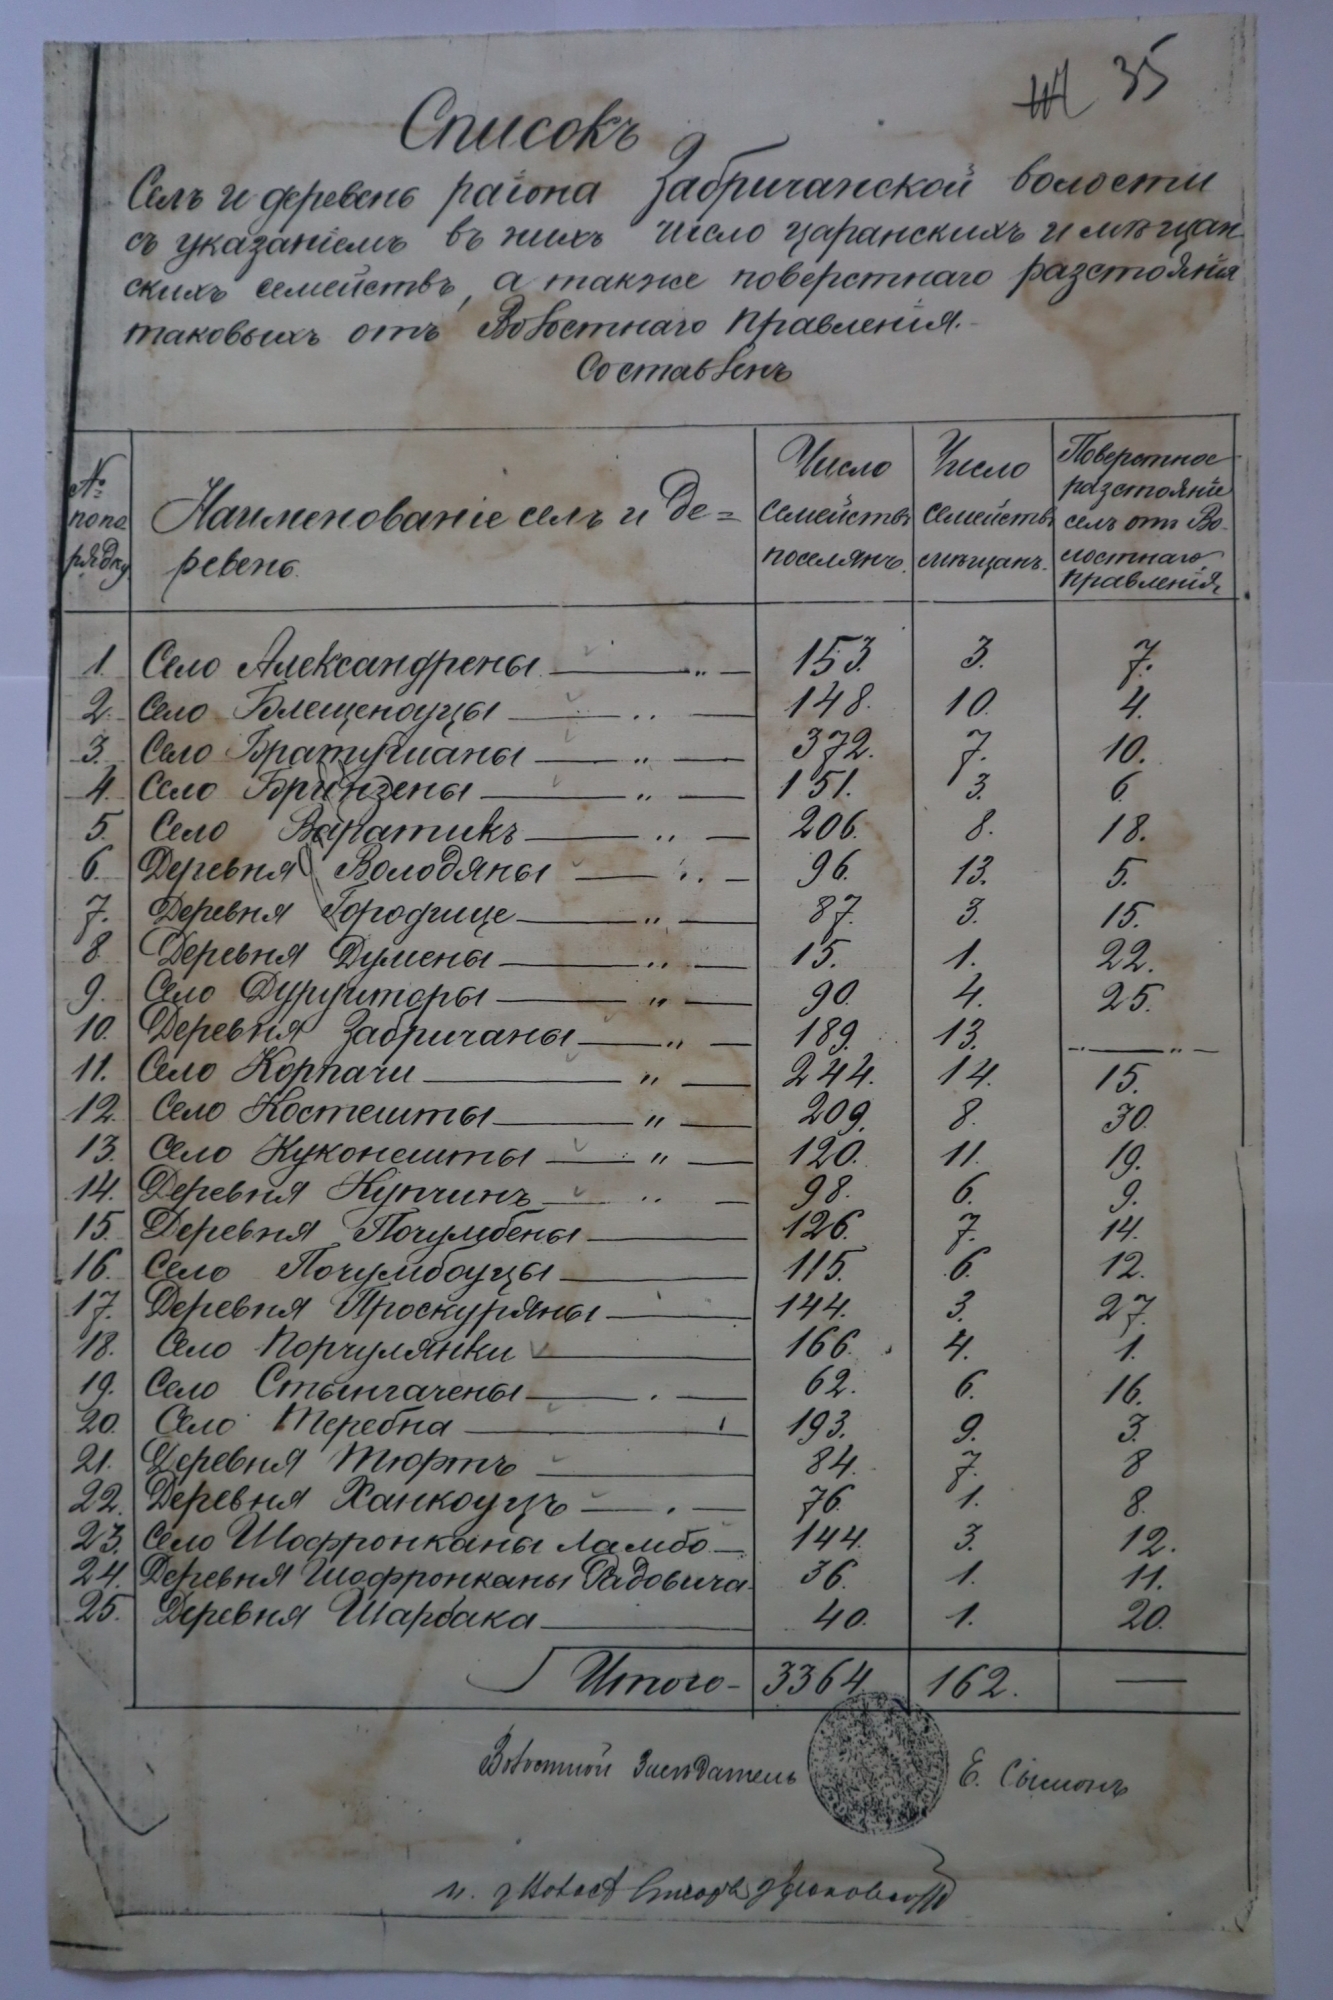 35
Списокъ
Селъ и деревень раіона Забричанской волости
съ указаніемъ въ нихъ число царанскихъ и мѣщан
скихъ семействъ, а также поверстнаго разстоянія
таковыхъ отъ Волостнаго Правленія.-
Составленъ
№ попо рядку | Наименованіе селъ и Де= ревень. | Число Семействъ поселянъ. | Число Семействъ мѣщанъ. | Поверстное разстояніе селъ отъ Во- лостнаго Правленія.
1. Село Александрены — „ — 153. 3. 7.
2. Село Блещеноуцы — „ — 148. 10. 4.
3. Село Братушаны — „ — 372. 7. 10.
4. Село Бринзены — „ — 151. 3. 6
5. Село Варатикъ — „ — 206. 8. 18.
6. Деревня Володяны — „ — 96. 13. 5.
7. Деревня Городище — „ — 87. 3. 15.
8 Деревня Думены — „ — 15. 1. 22.
9. Село Дуруиторы — „ — 90. 4. 25.
10. Деревня Забричаны — „ — 189. 13. — „ —
11. Село Корпачи — „ — 244. 14. 15.
12. Село Костешты — „ — 209. 8. 30.
13. Село Куконешты — „ — 120. 11. 19.
14. Деревня Купчинъ — „ — 98. 6. 9.
15. Деревня Почумбены — 126. 7. 14.
16. Село Почумбоуцы — 115. 6. 12.
17. Деревня Проскуряны — 144. 3. 27.
18. Село Порчулянки — 166. 4. 1.
19. Село Стынгачены — . — 62. 6. 16.
20. Село Теребна — 193. 9. 3.
21. Деревня Тюртъ — 84. 7. 8
22. Деревня Ханкоуцъ — . — 76. 1. 8.
23. Село Шофронканы Ламбо — 144. 3. 12.
24. Деревня Шофронканы Радовича 36. 1. 11.
25. Деревня Шарбака — 40. 1. 20.
Итого - 3364 162. —
Волостной Засѣдатель Е. Сымонъ